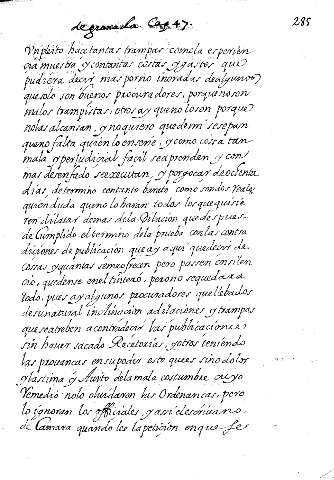 de granada Cap 47. 285
Un pleito hace tantas trampas como la esperien
cia muestra, y con tantas costas, y gastos que
pudiera decir mas por no ignoradas de algunos
que solo son buenos procuradores, porque no son
malos trampistas, otros ay que no lo son porque
no las alcansan, y no quiero que de mi se sepan
que no falta quien lo enseñe, y como cosa tan
mala y perjudicial facil se aprenden, y con
mas desenfado se executan, y por gocar de ochenta
dias, de termino con tanto
quien duda que no lo haran todos los que quisie
ren dilatar demas de la Dilacion que despues
de Cumplido el termino de la prueba con la contra
diciones de publicacion que ay aqui que decir de
cosas y quantas se me ofrecen pero pasen en silen
cio, quedense en el tintero, pero no se queda
todo, pues ay algunos procuradores que llebados
de su natural inclinacion a dilaciones y trampas
que se atreben a contradecir las publicaciones
sin haver sacado Recetorias, y otros teniendo
las provancas en su poder esto que es sino dolor
y lastima y fruto de la mala costumbre cuyo
Remedio no lo olvidaron las Ordenancas, pero
lo ignoran los officiales, y asi el escrivano
de Camara quando lee la peticion en que se